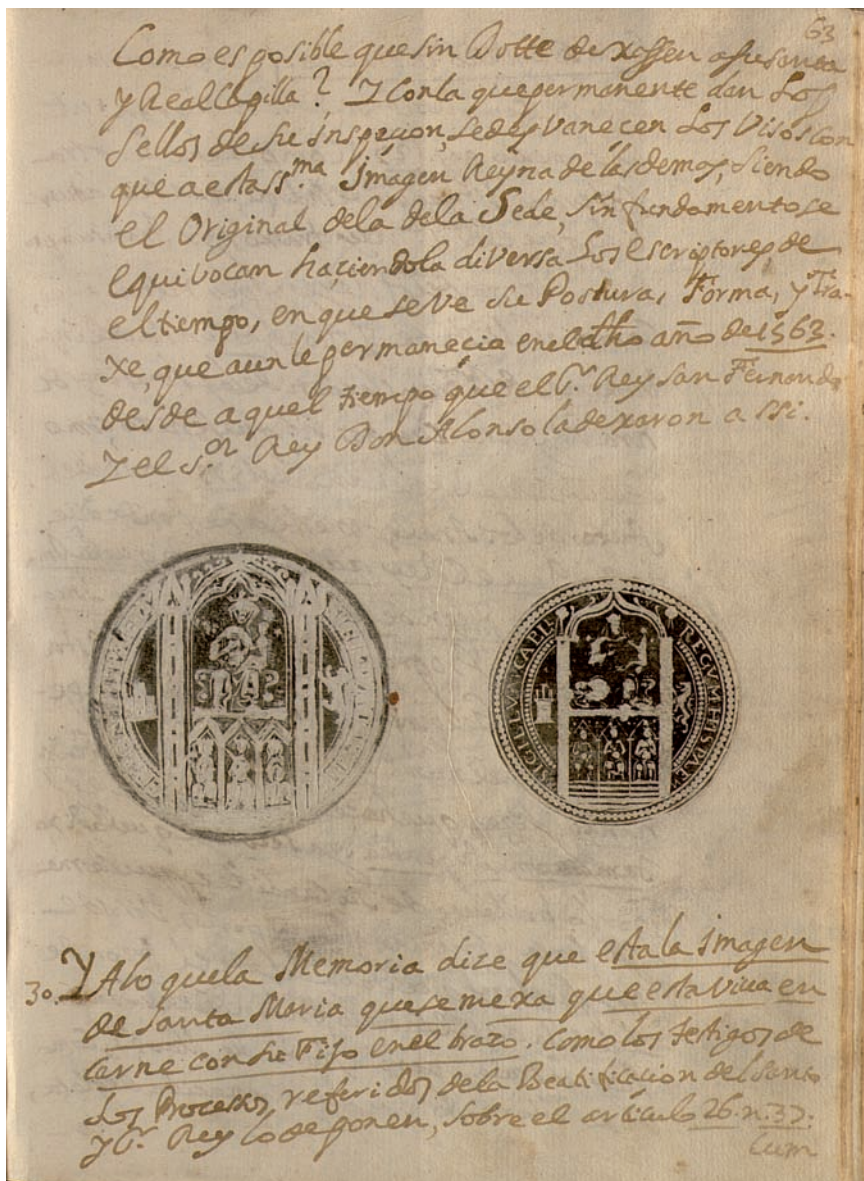 63
Como es posible que sin Dotte dexassen a su santa
y Real Capilla? Y con la que permanente dan Los
sellos de su inspecion, se desvanecen Los Visos con
que a esta SS.ma Imagen Reyna de las demas, siendo
el Original dela dela Sede, sin fundamento se
equivocan haciendola diversa Los Escriptores, de
el tiempo, en que se ve su Postura, Forma, y Tra-
xe, que aun le permanecia en el dho año de 1563.
desde aquel tiempo que el Sr. Rey San Fernando
Y el S.or Rey Don Alonso la dexaron assi.
SIGILLVM CAPIL REGVM HISPAE
30. Y A lo que la Memoria dize que esta la imagen
de Santa Maria que semexa que esta viva en
carne con su Fijo en el brazo. Como los testigos de
Los Processos referidos dela Beatificacion del Santo
y Sr. Rey lo deponen, sobre el articulo 26. n. 37.
Cum